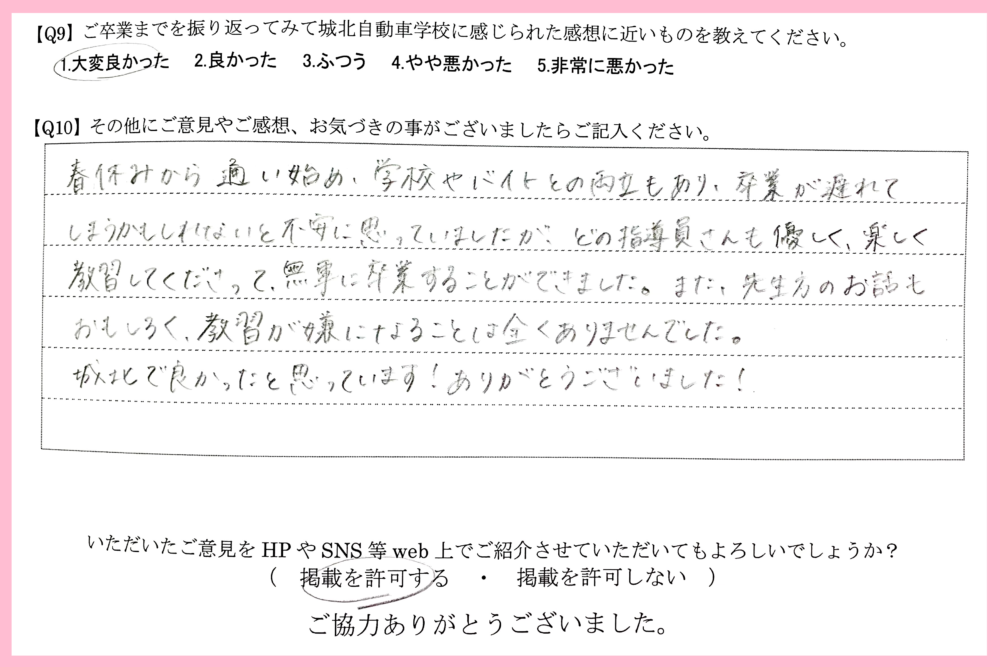 【Q9】ご卒業までを振り返ってみて城北自動車学校に感じられた感想に近いものを教えてください。
1.大変良かった 2.良かった 3.ふつう 4.やや悪かった 5.非常に悪かった
【Q10】その他にご意見やご感想、お気づきの事がございましたらご記入ください。
春休みから通い始め、学校やバイトとの両立もあり、卒業が遅れて
しまうかもしれないと不安に思っていましたが、どの指導員さんも優しく、楽しく
教習してくださって、無事に卒業することができました。また、先生方のお話も
おもしろく、教習が嫌になることは全くありませんでした。
城北で良かったと思っています！ありがとうございました！
いただいたご意見をHPやSNS等web上でご紹介させていただいてもよろしいでしょうか？
（ 掲載を許可する ・ 掲載を許可しない ）
ご協力ありがとうございました。